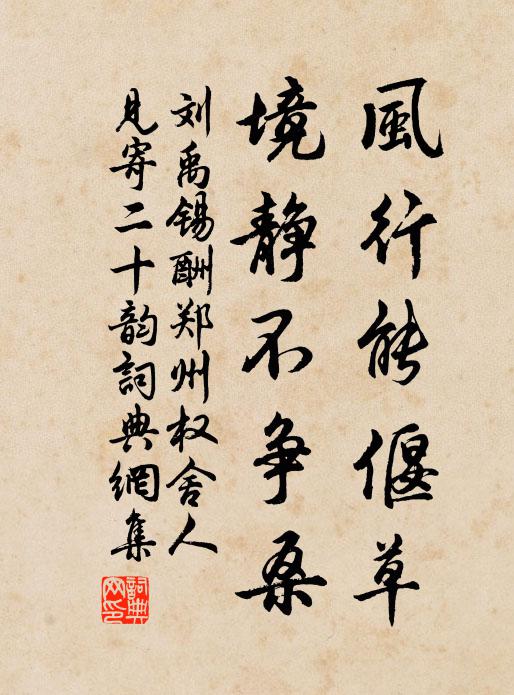 風行能偃草
境静不争桑
刘禹锡酬郑州权舍人
見寄二十韵詞典網集
詞典
网印